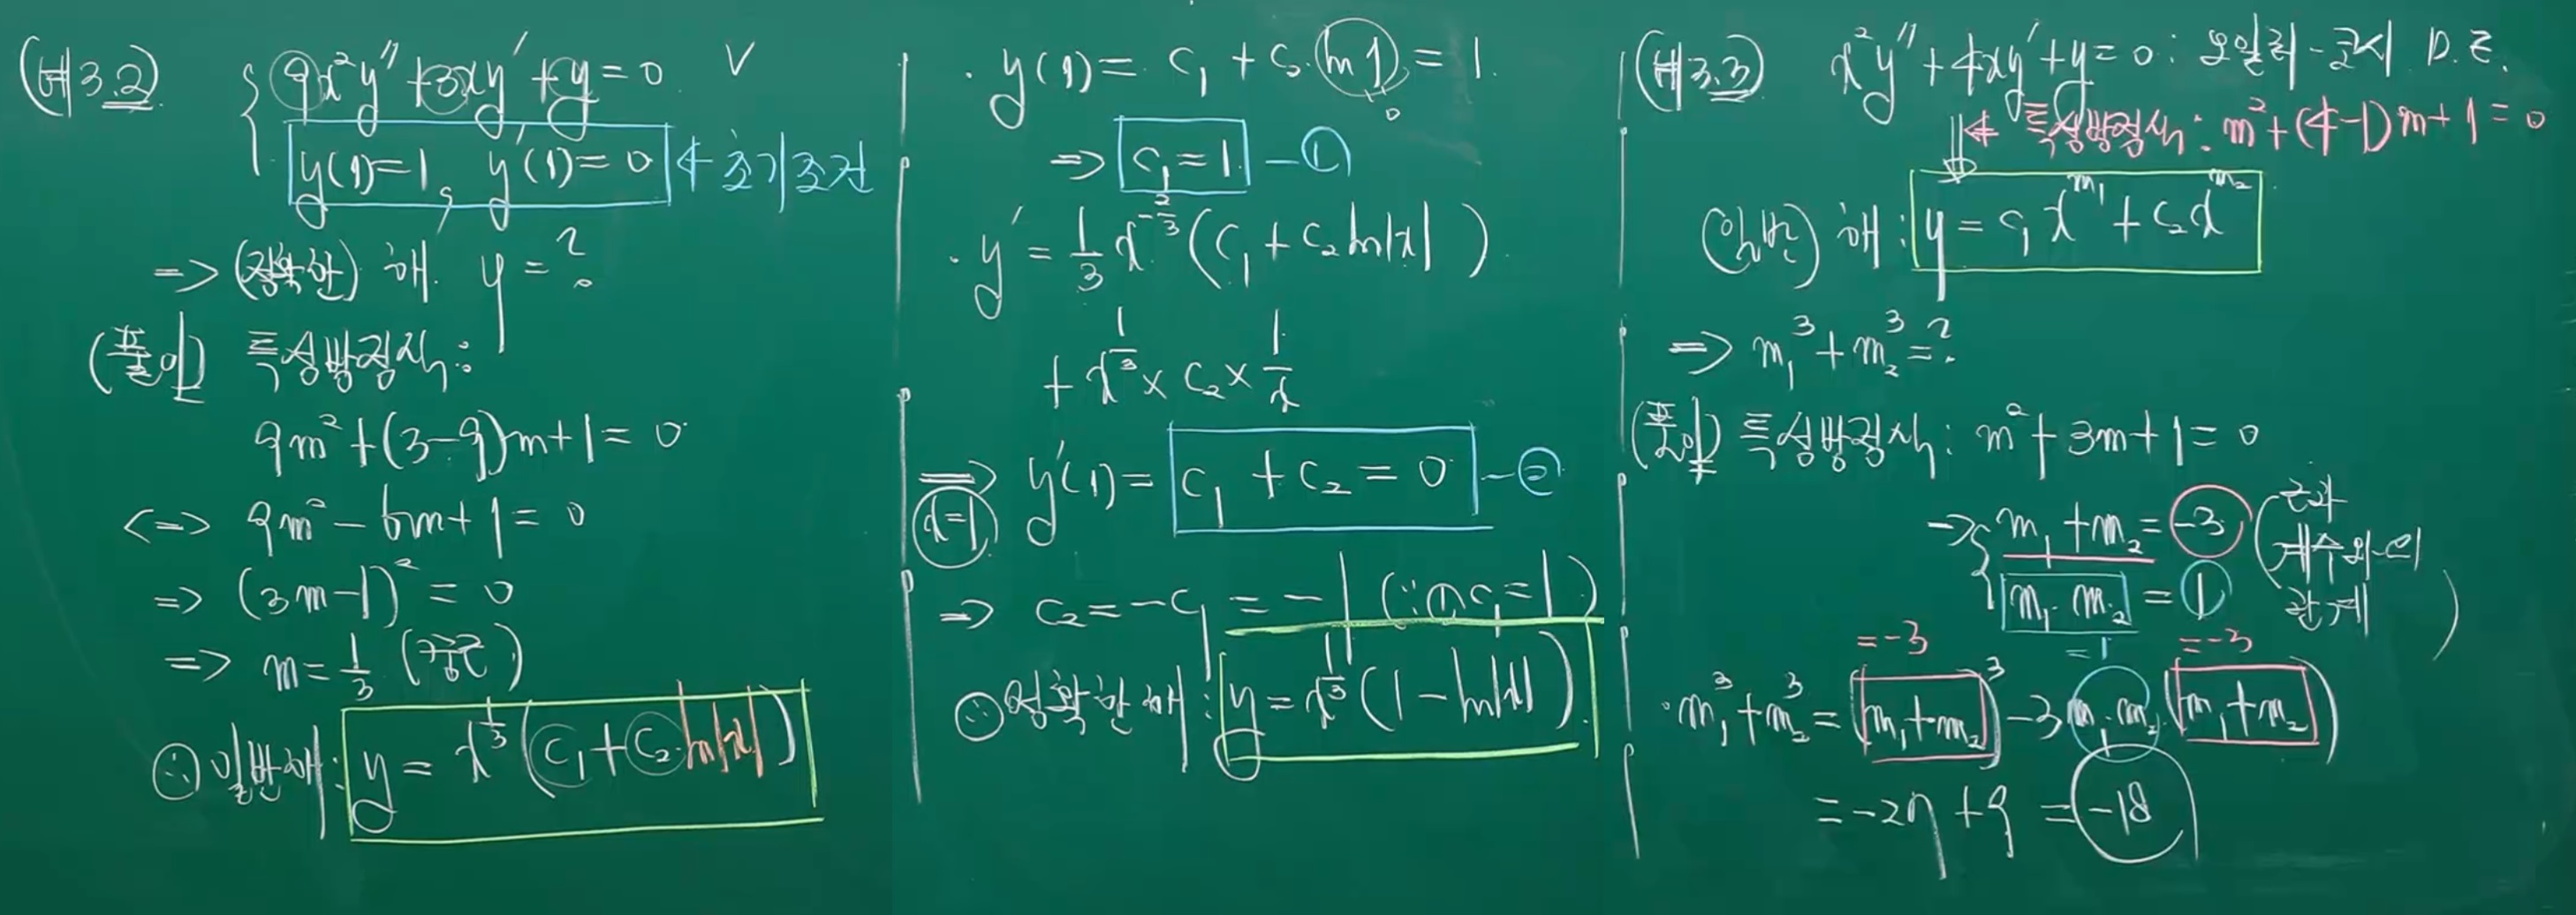 (예 3.2) 9x²y″ + 3xy′ + y = 0 ∨
y(1)=1, y′(1)=0 ← 초기조건
⇒ (정확한) 해 y = ?
(풀이) 특성방정식:
9m² + (3-9)m + 1 = 0
<=> 9m² - 6m + 1 = 0
⇒ (3m-1)² = 0
⇒ m = 1/3 (중근)
∴ 일반해: y = x^(1/3) (c₁ + c₂ ln|x|)
· y(1) = c₁ + c₂ ln 1 = 1
0
⇒ c₁ = 1 - ①
· y′ = 1/3 x^(-2/3) (c₁ + c₂ ln|x|)
+ x^(1/3) × c₂ × 1/x
⇒ y′(1) = c₁ + c₂ = 0 - ②
x=1
⇒ c₂ = -c₁ = -1 (∵ ① c₁ = 1)
∴ 정확한 해: y = x^(1/3) (1 - ln|x|)
(예 3.3) x²y″ + 4xy′ + y = 0 : 오일러-코시 D.E.
⇓ ← 특성방정식: m² + (4-1)m + 1 = 0
(일반) 해: y = c₁x^(m₁) + c₂x^(m₂)
⇒ m₁³ + m₂³ = ?
(풀이) 특성방정식: m² + 3m + 1 = 0
→ m₁ + m₂ = -3 (근과
m₁ · m₂ = 1 계수와의
관계)
=-3 =1 =-3
· m₁³ + m₂³ = (m₁+m₂)³ - 3 m₁·m₂ (m₁+m₂)
= -27 + 9 = -18